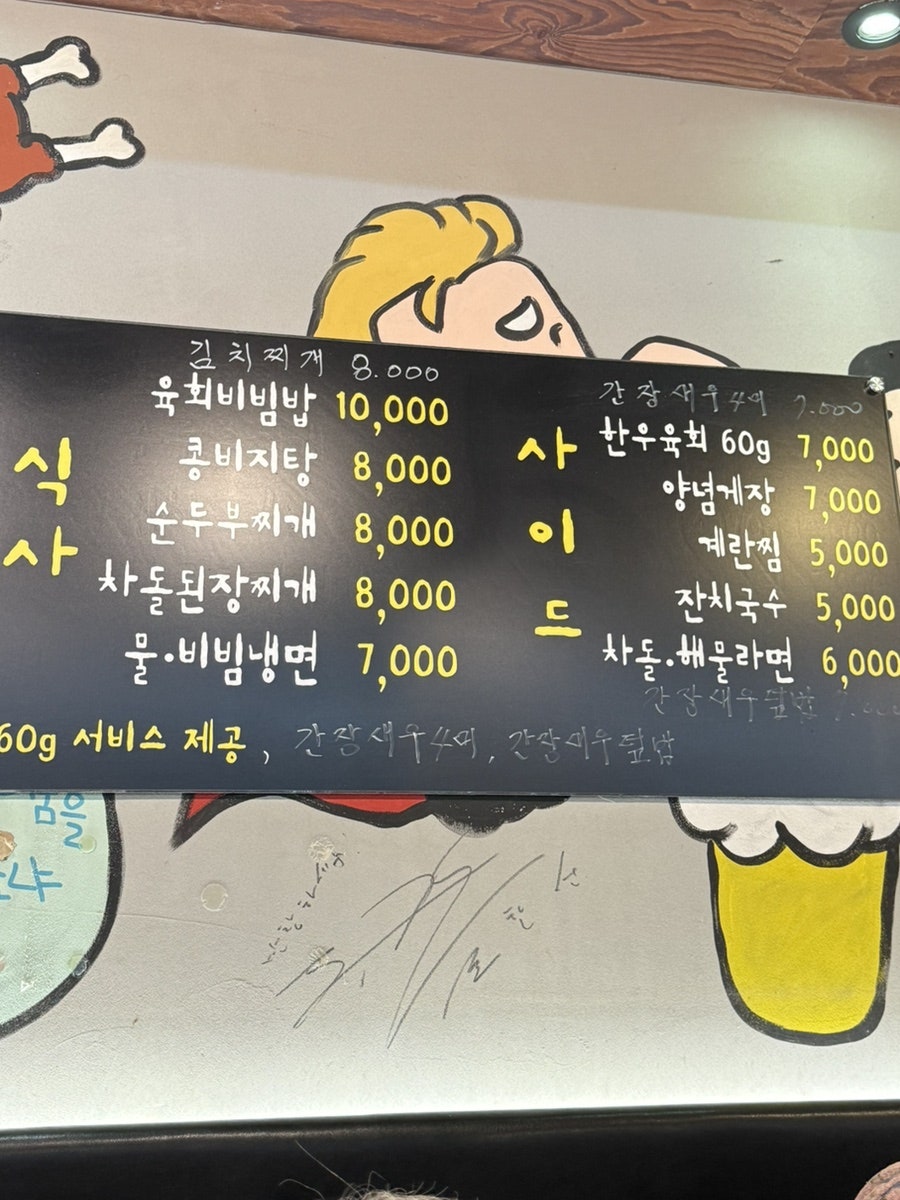 김치찌개 8.000
육회비빔밥 10,000
콩비지탕 8,000
순두부찌개 8,000
차돌된장찌개 8,000
물·비빔냉면 7,000
식사
간장새우4미 7.000
한우육회 60g 7,000
양념게장 7,000
계란찜 5,000
잔치국수 5,000
차돌·해물라면 6,000
간장새우덮밥 7.000
사이드
60g 서비스 제공, 간장새우4미, 간장새우덮밥